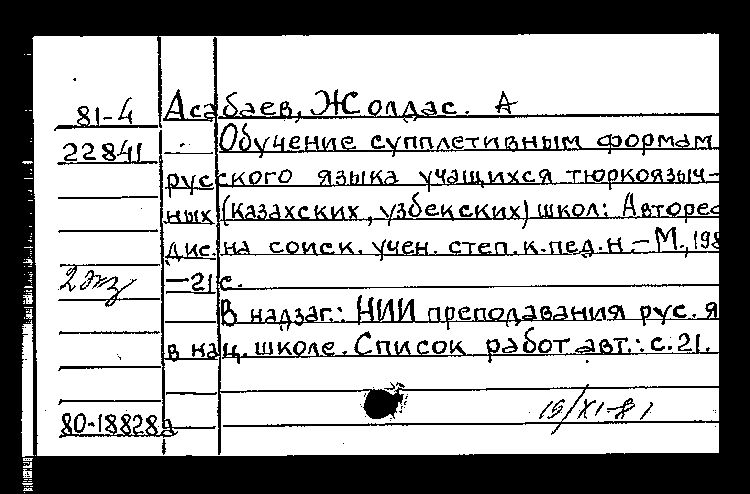 81-4 Асабаев, Жолдас. А
22841 Обучение супплетивным формам
русского языка учащихся тюркоязыч-
ных (казахских, узбекских) школ: Авторе
дис. на соиск. учен. степ. к. пед. н. – М., 198
2 экз – 21 с.
В надзаг.: НИИ преподавания рус. я
в нац. школе. Список работ авт.: с. 21.
19/XI-81
80-18828а